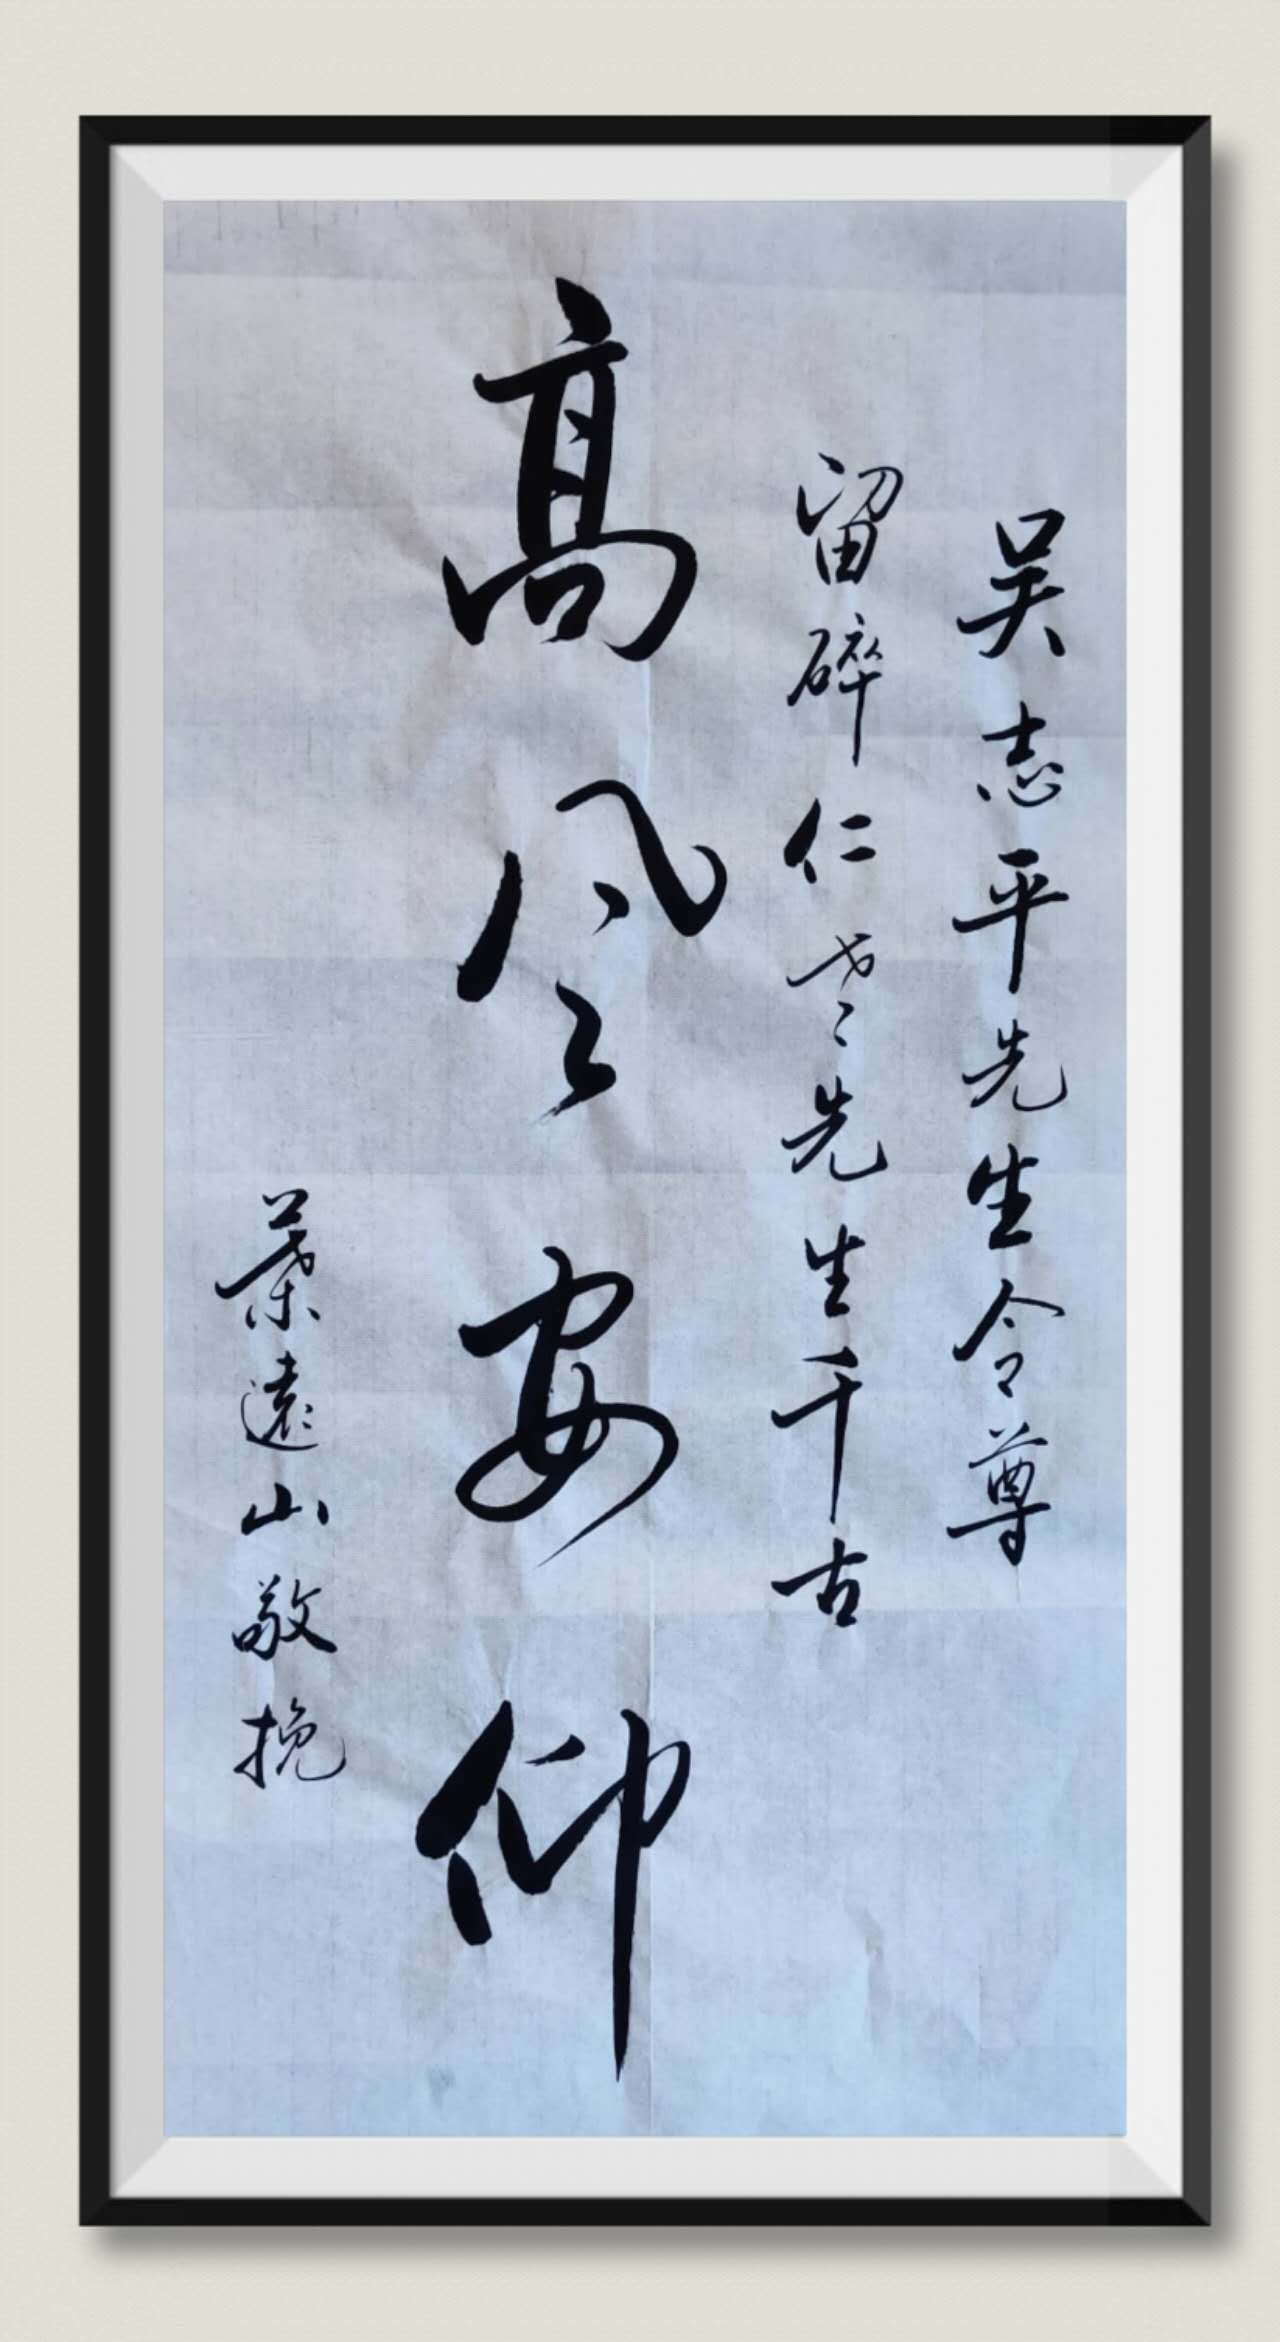 吴志平先生令尊
留碎仁老先生千古
高風安仰
葉遠山敬挽